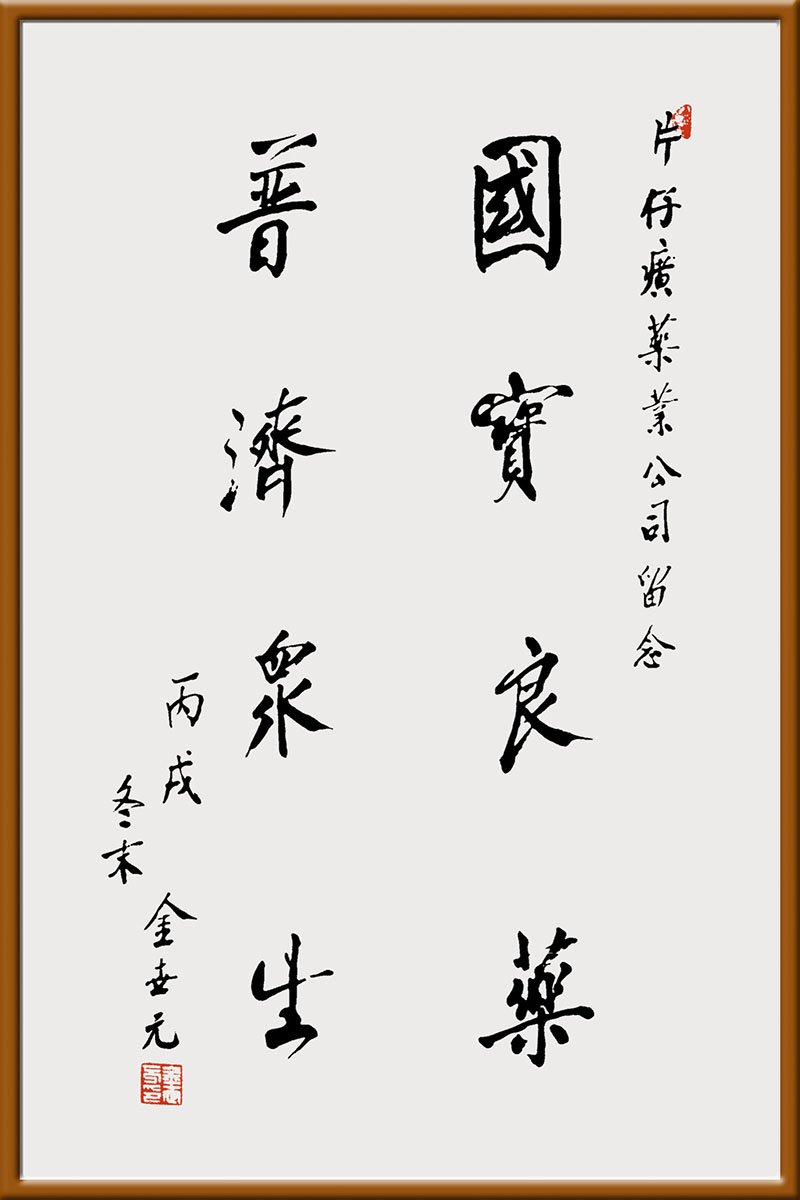 片仔癀药業公司留念
國寶良藥
普濟眾生
丙戌
冬末
金世元